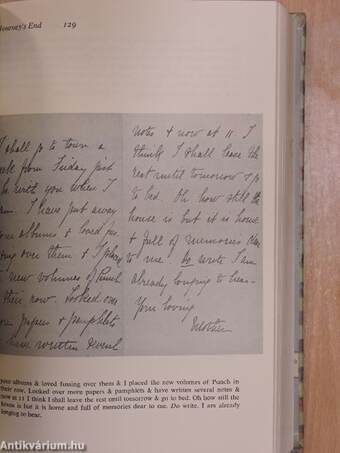 Journey's End 129
I shall go to town a
week from Friday just
be with you when I
am. I have put away
your albums & loved
over them & I place
new volumes of Punch
their row. Looked over
papers & pamphlets
have written several
notes & now at 11 I
think I shall leave the
rest until tomorrow & go
to bed. Oh how still the
house is but it is home
& full of memories dear
to me. Do write I am
already longing to hear.
Your loving
Mother
your albums & loved fussing over them & I placed the new volumes of Punch in
their row, Looked over more papers & pamphlets & have written several notes &
now at 11 I think I shall leave the rest until tomorrow & go to bed. Oh how still the
house is but it is home and full of memories dear to me. Do write. I am already
longing to hear.
Antikvárium.hu